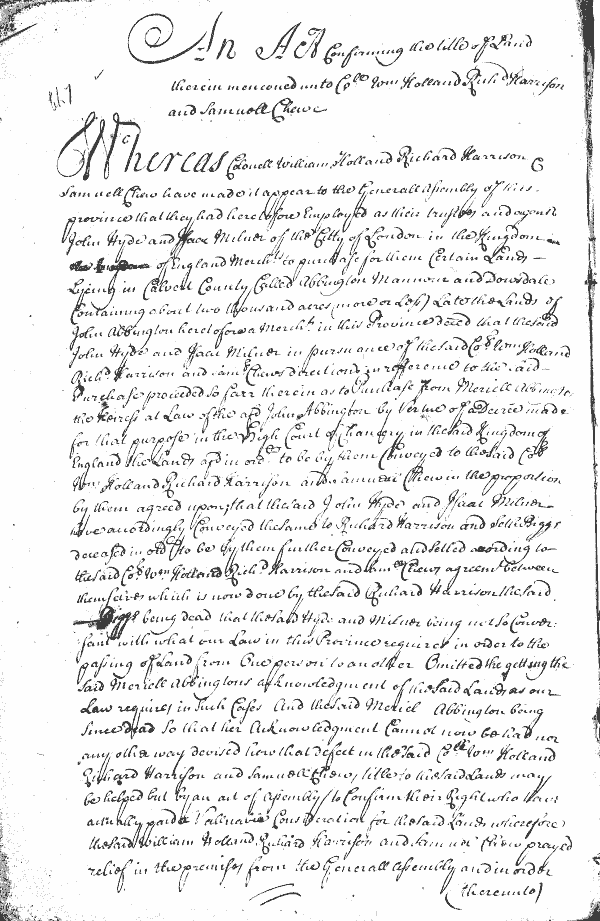 An Act Confirming the title of Land
therein menconed unto Coll Wm Holland Richd Harrison
and Samuell Chew
Whereas Colonell William Holland Richard Harrison &
Samuell Chew have made it appear to the Generall Assembly of this
province that they had heretofore Employed as their trustees and agents
John Hyde and Isaac Milner of the Citty of London in the Kingdom
of England Mercht to purchase for them Certain Lands
Lyeing in Calvert County Called Abbington Mannour and Dowsdale
Containing about two thousand acres (more or Less) Late the Lands of
John Abbington heretofore a Mercht in this Province that the said
John Hyde and Isaac Milner in pursuance of the said Coll Wm Holland
Richd Harrison and Saml Chews directions in refference to the said
Purchase proceeded so farr therein as to Purchase from Meriell Abbington
the Heiress at Law of the afd John Abbington by Vertue of a Decree made
for that purpose in the High Court of Chancry in the said Kingdom of
England the Lands afd in ordr to be by them Conveyed to the said Coll
Wm Holland Richard Harrison and Samuel Chew in the proportion
by them agreed upon, that the said John Hyde and Isaac Milner
have accordingly Conveyed the same to Richard Harrison and Seth Biggs
deceased in ordr to be by them further Conveyed and setled according to
the said Coll Wm Holland Richd Harrison and Saml Chews agreemt between
themselves which is now done by the said Richard Harrison the said
Biggs being dead that the said Hyde and Milner being not so Conver
sant with what our Law in this Province requires in order to the
passing of Land from One person to another Omitted the getting the
said Meriell Abbingtons acknowledgment of the said Lands as our
Law requires in such Cases And the said Meriel Abbington being
Since dead So that her Acknowledgment Cannot now be had nor
any other way devised how that defect in the said Coll Wm Holland
Richard Harrison and Samuell Chews title to the said Lands may
be helped but by an act of Assembly to Confirm their Right who have
actually paid a Consideration for the said Lands wherefore
the said William Holland, Richard Harrison and Samuel Chew prayed
relief in the premises from the Generall Assembly and in order
thereunto